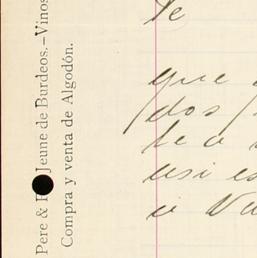 Pere & F Jeune de Burdeos.–Vinos
Compra y venta de Algodón.
Te
que
dos
te a
asi es
ó Vu